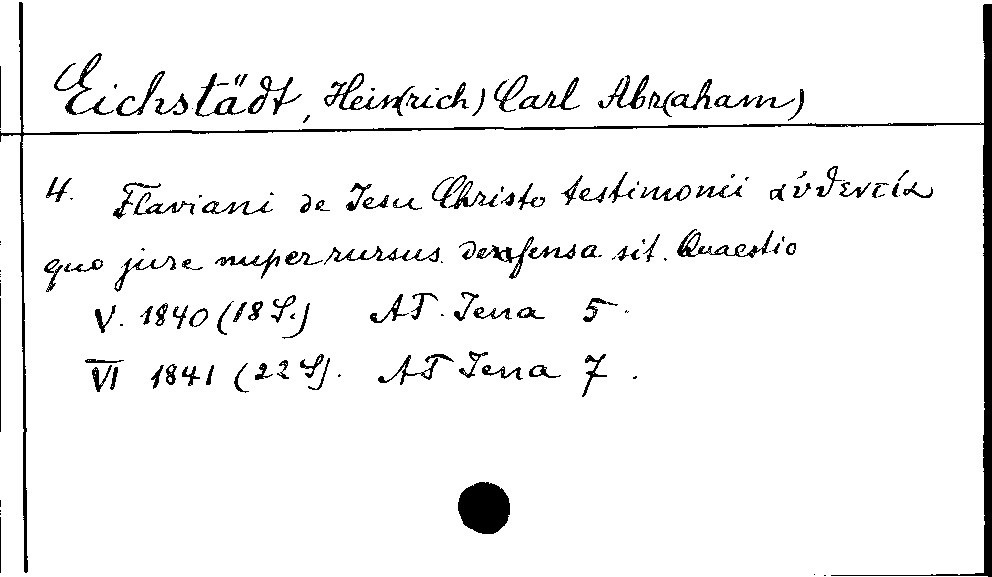 Eichstädt, Hein(rich) Carl Abr(aham)
4. Flaviani de Iesu Christo testimonii αύϑεντία
quo jure nuper rursus defensa sit. Quaestio
V. 1840 (18 S.) AT. Jena 5.
VI 1841 (22 S). AT Jena 7.